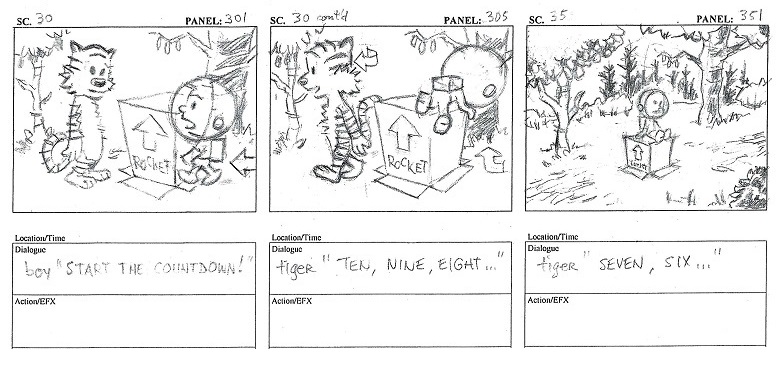 SC. 30 PANEL: 301
ROCKET
Location/Time
Dialogue
boy "START THE COUNTDOWN!"
Action/EFX
SC. 30 cont'd PANEL: 305
ROCKET
Location/Time
Dialogue
tiger "TEN, NINE, EIGHT..."
Action/EFX
SC. 35 PANEL: 351
ROCKET
Location/Time
Dialogue
tiger "SEVEN, SIX..."
Action/EFX